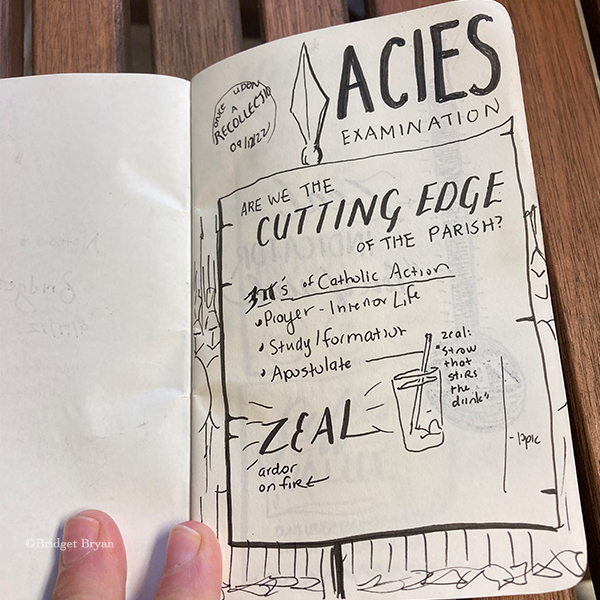 ONCE UPON
A
RECOLLECTIO
ACIES
EXAMINATION
ARE WE THE
CUTTING EDGE
OF THE PARISH?
of Catholic Action
• Prayer - Interior Life
• Study/formation
• Apostolate
zeal:
"straw
that
stirs
the
drink"
ZEAL
ardor
on fire
©Bridget Bryan